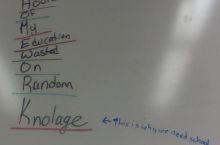 Of
My
Education
Wasted
On
Random
Knolage
←This is why we need school